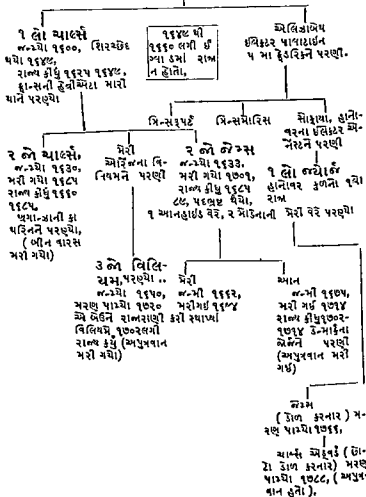 ૧ લો ચાર્લ્સ
જન્મ્યો ૧૬૦૦, શિરચ્છેદ
થયો ૧૬૪૯,
રાજ્ય કીધું ૧૬૨૫ ૧૬૪૯,
ફ્રાન્સની હેન્રીએટા મારી
યાને પરણ્યો
૧૬૪૯ થી
૧૬૬૦ લગી ઈં
ગ્લાંડમાં રાજા
ન હોતો,
એલિઝાબેથ
ઇલેક્ટર પાલાટાઇન
૫ મા ફ્રેડરિકને પરણી.
પ્રિન્સરૂપર્ટ
પ્રિન્સમારિસ
સોફાયા, હાનો
વરના ઇલેક્ટર એ
ર્નેસ્ટને પરણી
૨ જો ચાર્લ્સ,
જન્મ્યો ૧૬૩૦,
મરી ગયો ૧૬૮૫
રાજ્ય કીધું ૧૬૬૦
૧૬૮૫,
બ્રગાન્ઝાની કા
થરિનને પરણ્યો,
(બીન વારસ
મરી ગયો)
મેરી
ઓરેંજના વિ
લિયમને પરણી
૨ જો જેમ્સ
જન્મ્યો ૧૬૩૩,
મરી ગયો ૧૭૦૧,
રાજ્ય કીધું ૧૬૮૫
૮૯, પદભ્રષ્ટ થયો,
૧ આનહાઇડ વેરે, ૨ મોડેનાની મેરી વેરે પરણ્યો
૧ લો જ્યોર્જ
હાનોવર કુળનો ૧લો
રાજા
૩ જો વિલિ
યમ, પરણ્યો ..
જન્મ્યો ૧૬૫૦,
મરણ પામ્યો ૧૭૨૦
એ બેઉને રાજારાણી કરી સ્થાપ્યાં
વિલિયમે ૧૭૦૨લગી
રાજ્ય કર્યું (અપુત્રવાન
મરી ગયો)
મેરી
જન્મી ૧૬૬૨,
મરીગઈ ૧૬૯૪
આન
જન્મી ૧૬૭૫,
મરી ગઈ ૧૭૧૪
રાજ્ય કીધું૧૭૦૨-
૧૭૧૪ ડેન્માર્કના
જોર્જને પરણી
(અપુત્રવાન મરી
ગઈ)
જેમ્સ
(ડોળ કરનાર) મ-
રણ પામ્યો ૧૭૬૬,
ચાર્લ્સ એડ્વર્ડ (છો
ટો ડોળ કરનાર) મરણ
પામ્યો ૧૭૮૮, (અપુત્ર
વાન હતો).